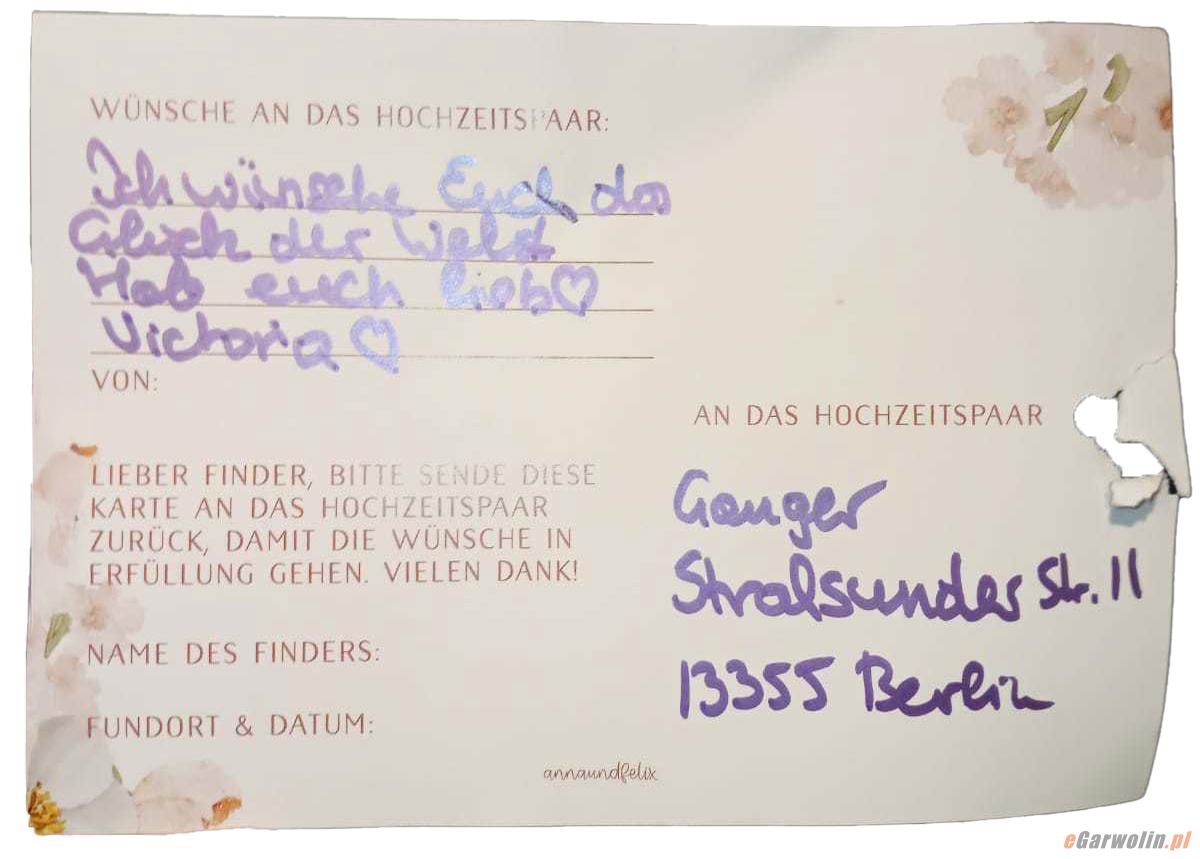 WÜNSCHE AN DAS HOCHZEITSPAAR:
Ich wünsche Euch das
Glück der Welt
Hab euch lieb♡
Victoria ♡
VON:
LIEBER FINDER, BITTE SENDE DIESE
KARTE AN DAS HOCHZEITSPAAR
ZURÜCK, DAMIT DIE WÜNSCHE IN
ERFÜLLUNG GEHEN. VIELEN DANK!
NAME DES FINDERS:
FUNDORT & DATUM:
AN DAS HOCHZEITSPAAR
Ganger
Stralsunder Str. 11
13355 Berlin
annaundfelix
eGarwolin.pl